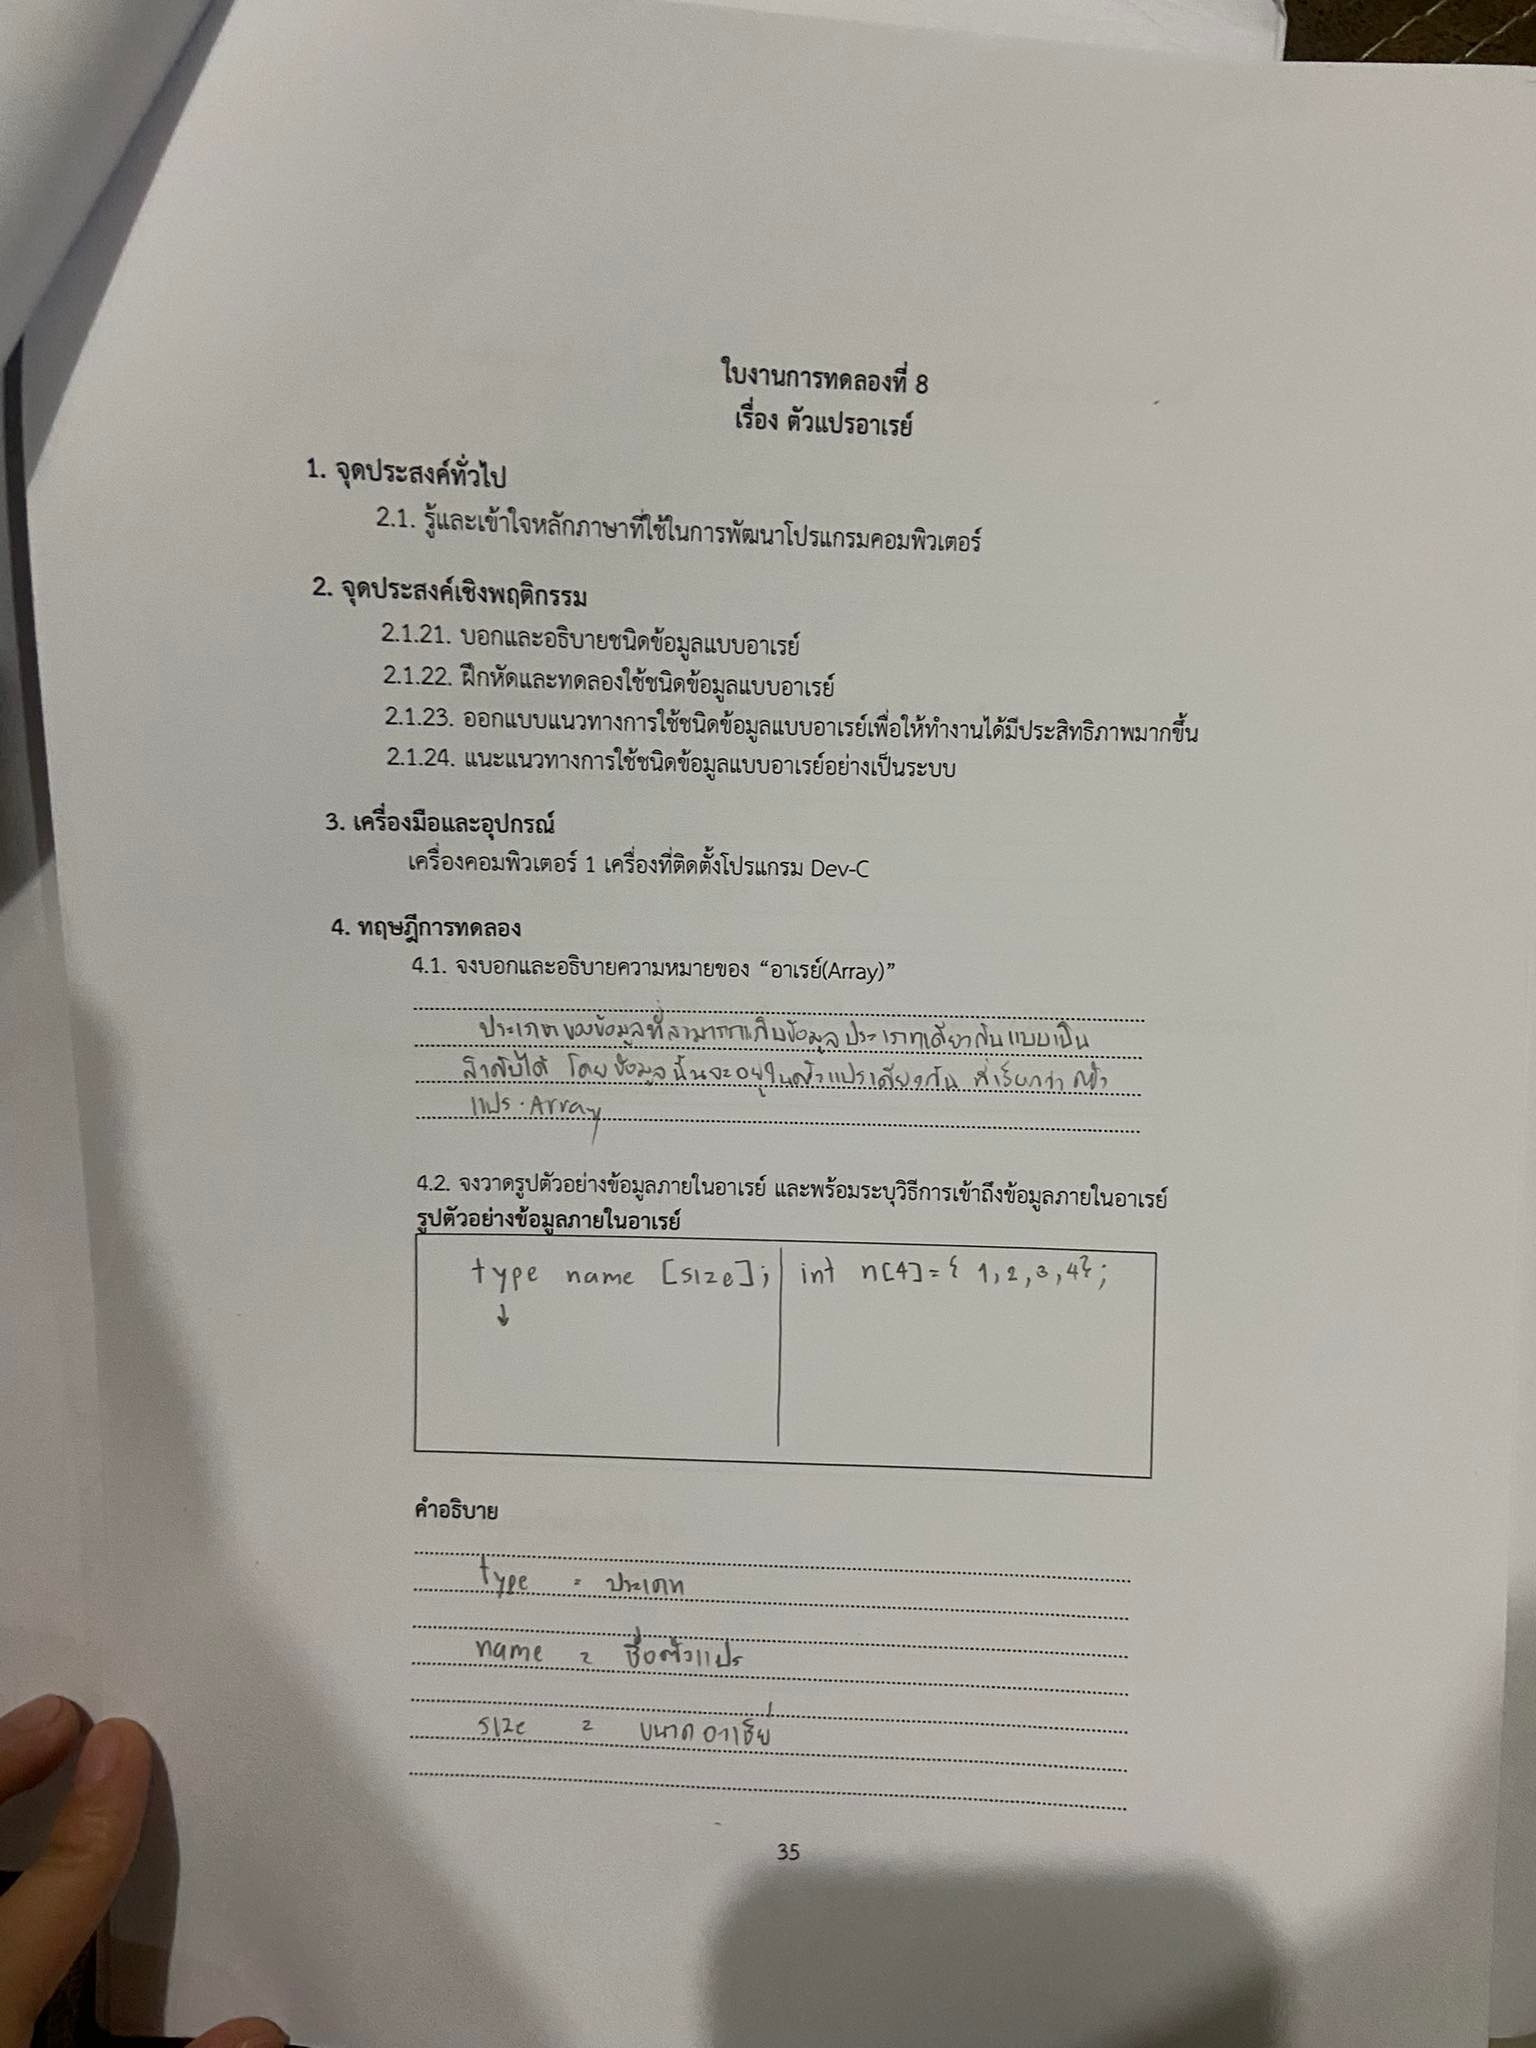 ใบงานการทดลองที่ 8
เรื่อง ตัวแปรอาเรย์
1. จุดประสงค์ทั่วไป
2.1. รู้และเข้าใจหลักภาษาที่ใช้ในการพัฒนาโปรแกรมคอมพิวเตอร์
2. จุดประสงค์เชิงพฤติกรรม
2.1.21. บอกและอธิบายชนิดข้อมูลแบบอาเรย์
2.1.22. ฝึกหัดและทดลองใช้ชนิดข้อมูลแบบอาเรย์
2.1.23. ออกแบบแนวทางการใช้ชนิดข้อมูลแบบอาเรย์เพื่อให้ทำงานได้มีประสิทธิภาพมากขึ้น
2.1.24. แนะแนวทางการใช้ชนิดข้อมูลแบบอาเรย์อย่างเป็นระบบ
3. เครื่องมือและอุปกรณ์
เครื่องคอมพิวเตอร์ 1 เครื่องที่ติดตั้งโปรแกรม Dev-C
4. ทฤษฎีการทดลอง
4.1. จงบอกและอธิบายความหมายของ “อาเรย์(Array)”
ประเภทของข้อมูลที่สามารถเก็บข้อมูลประเภทเดียวกันแบบเป็น
ลำดับได้ โดยข้อมูลนั้นจะอยู่ในตัวแปรเดียวกัน ที่เรียกว่า ตัว
แปร Array
4.2. จงวาดรูปตัวอย่างข้อมูลภายในอาเรย์ และพร้อมระบุวิธีการเข้าถึงข้อมูลภายในอาเรย์
รูปตัวอย่างข้อมูลภายในอาเรย์
type name [size]; int n[4]={ 1,2,3,4};
↓
คำอธิบาย
type = ประเภท
name = ชื่อตัวแปร
size = ขนาด
35